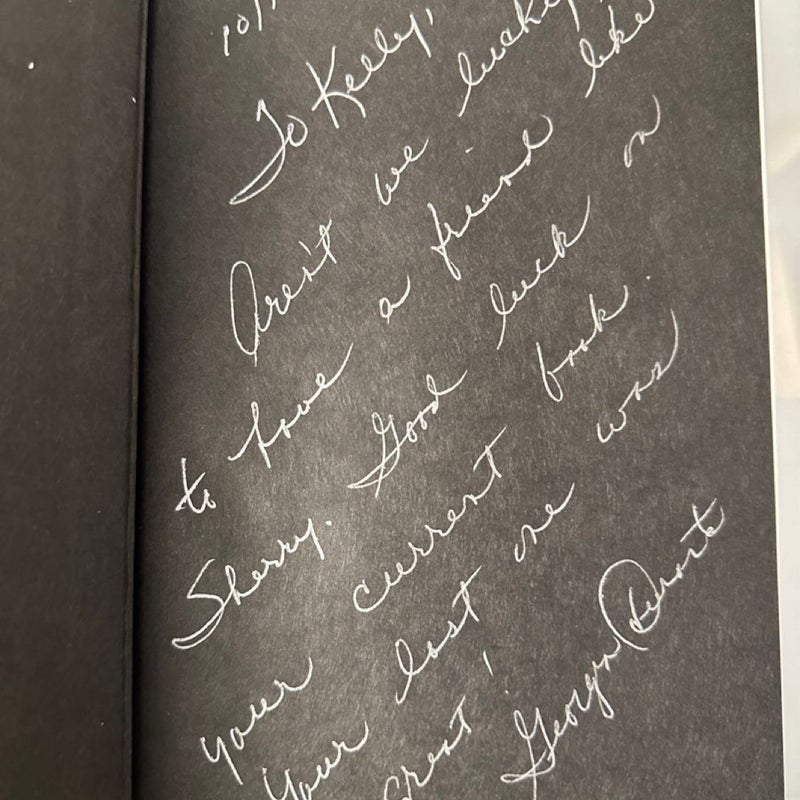 10/
To Kelly,
Aren't we lucky
to have a friend like
Sherry. Good luck on
your current book.
Your last one was
great!
Georgia